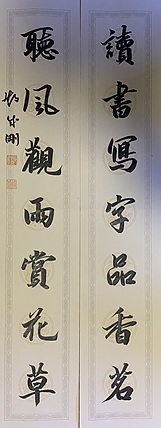 讀書寫字品香茗
聽風觀雨賞花草